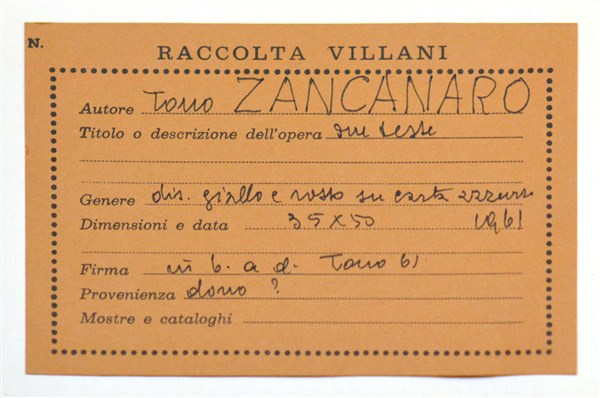 N.
RACCOLTA VILLANI
Autore Tono ZANCANARO
Titolo o descrizione dell'opera due teste
Genere dis. giallo e rosso su carta azzurra
Dimensioni e data 35x50 1961
Firma in b. a d. Tono 61
Provenienza dono ?
Mostre e cataloghi